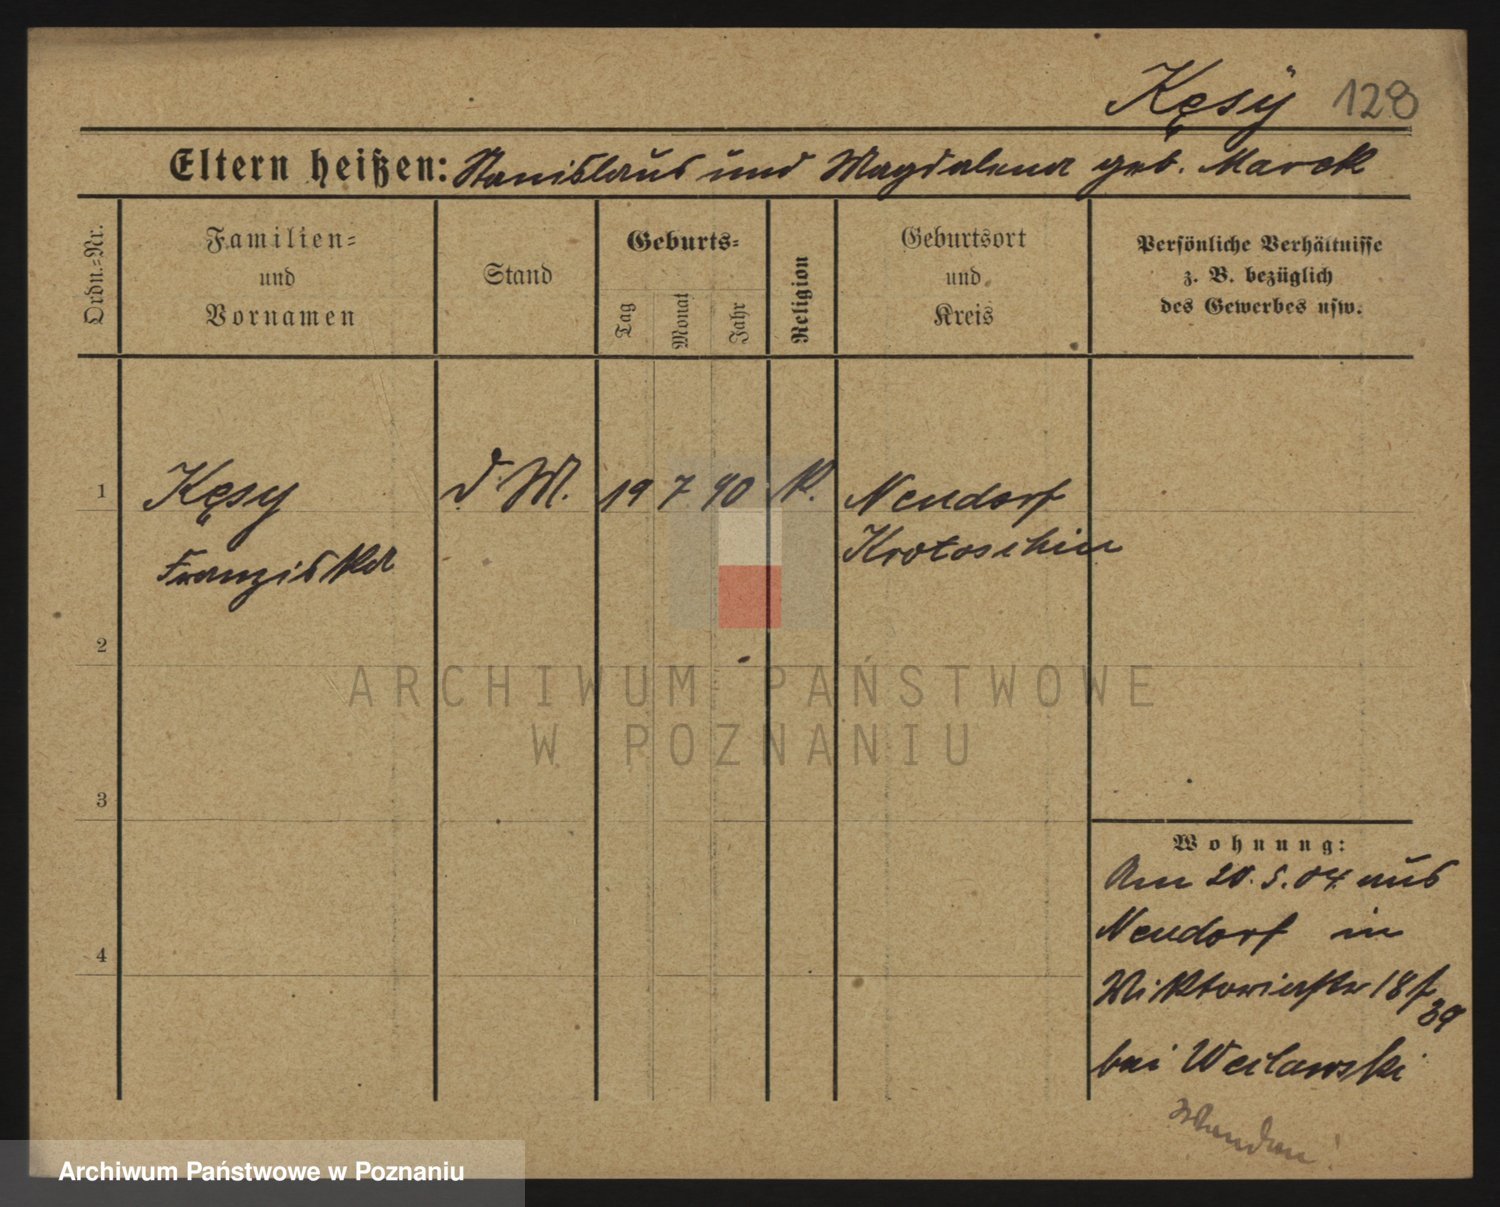 Kęsÿ 128
Eltern heißen: Stanislaus und Magdalena geb. Marek
Ordn.-Nr.
Familien-
und
Vornamen
Stand
Geburts-
Tag
Monat
Jahr
Religion
Geburtsort
und
Kreis
Persönliche Verhältnisse
z. B. bezüglich
des Gewerbes usw.
1 Kęsy d. M. 19 7 90 K. Neudorf
Franziska Krotoschin
2
ARCHIWUM PAŃSTWOWE
W POZNANIU
3
Wohnung:
Am 20.5.04 aus
Neudorf in
4
Wiktoriastr 18
bei
Archiwum Państwowe w Poznaniu